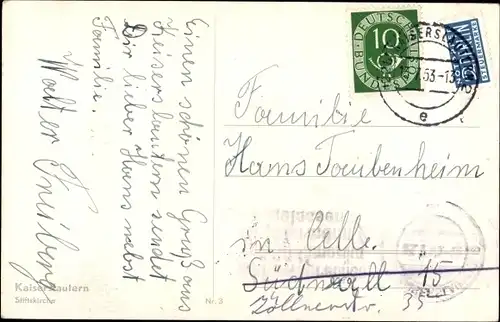 Einen schönen Gruß aus
Keisers lautern sendet
Dir lieber Hans nebst
Familie.
Walter
Kaiserslautern
Stiftskirche
Nr. 3
DEUTSCHE BUNDESPOST
10
e
Familie
Hans Taubenheim
in Celle.
Südwall 15
Zöllnerstr. 35